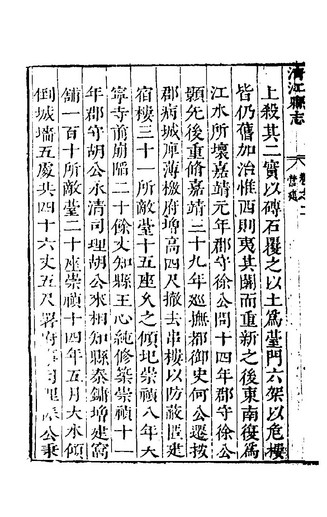 清江縣志
卷之二
上殺其二實以磚石覆之以土爲臺門六架以危樓
皆仍舊加治惟西則夷其關而重新之後東南復爲
江水所壞嘉靖元年郡守徐公問十四年郡守徐公
顥先後重脩嘉靖二十九年巡撫都御史何公遷按
郡病城庳薄檄府增高四尺撤去串樓以防蔽匿建
宿樓三十一所敵臺十五座乆之傾圮崇禎八年大
寧寺前崩陷二十餘丈知縣王心純修築崇禎十一
年郡守胡公永清司理胡公來相知縣秦鏞增建窩
舖一百十所敵臺二十座崇禎十四年五月大水傾
倒城墻五處共四十六丈五尺署府事司理公秉